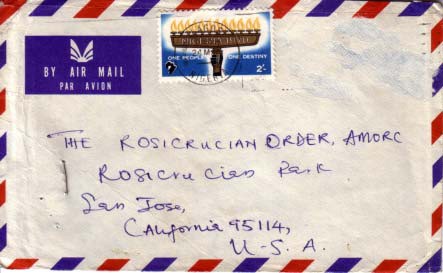 BY AIR MAIL
PAR AVION
ONE PEOPLE ONE DESTINY
2/-
THE ROSICRUCIAN ORDER, AMORC
Rosicrucian Park
San Jose,
California 95114,
U.S.A.